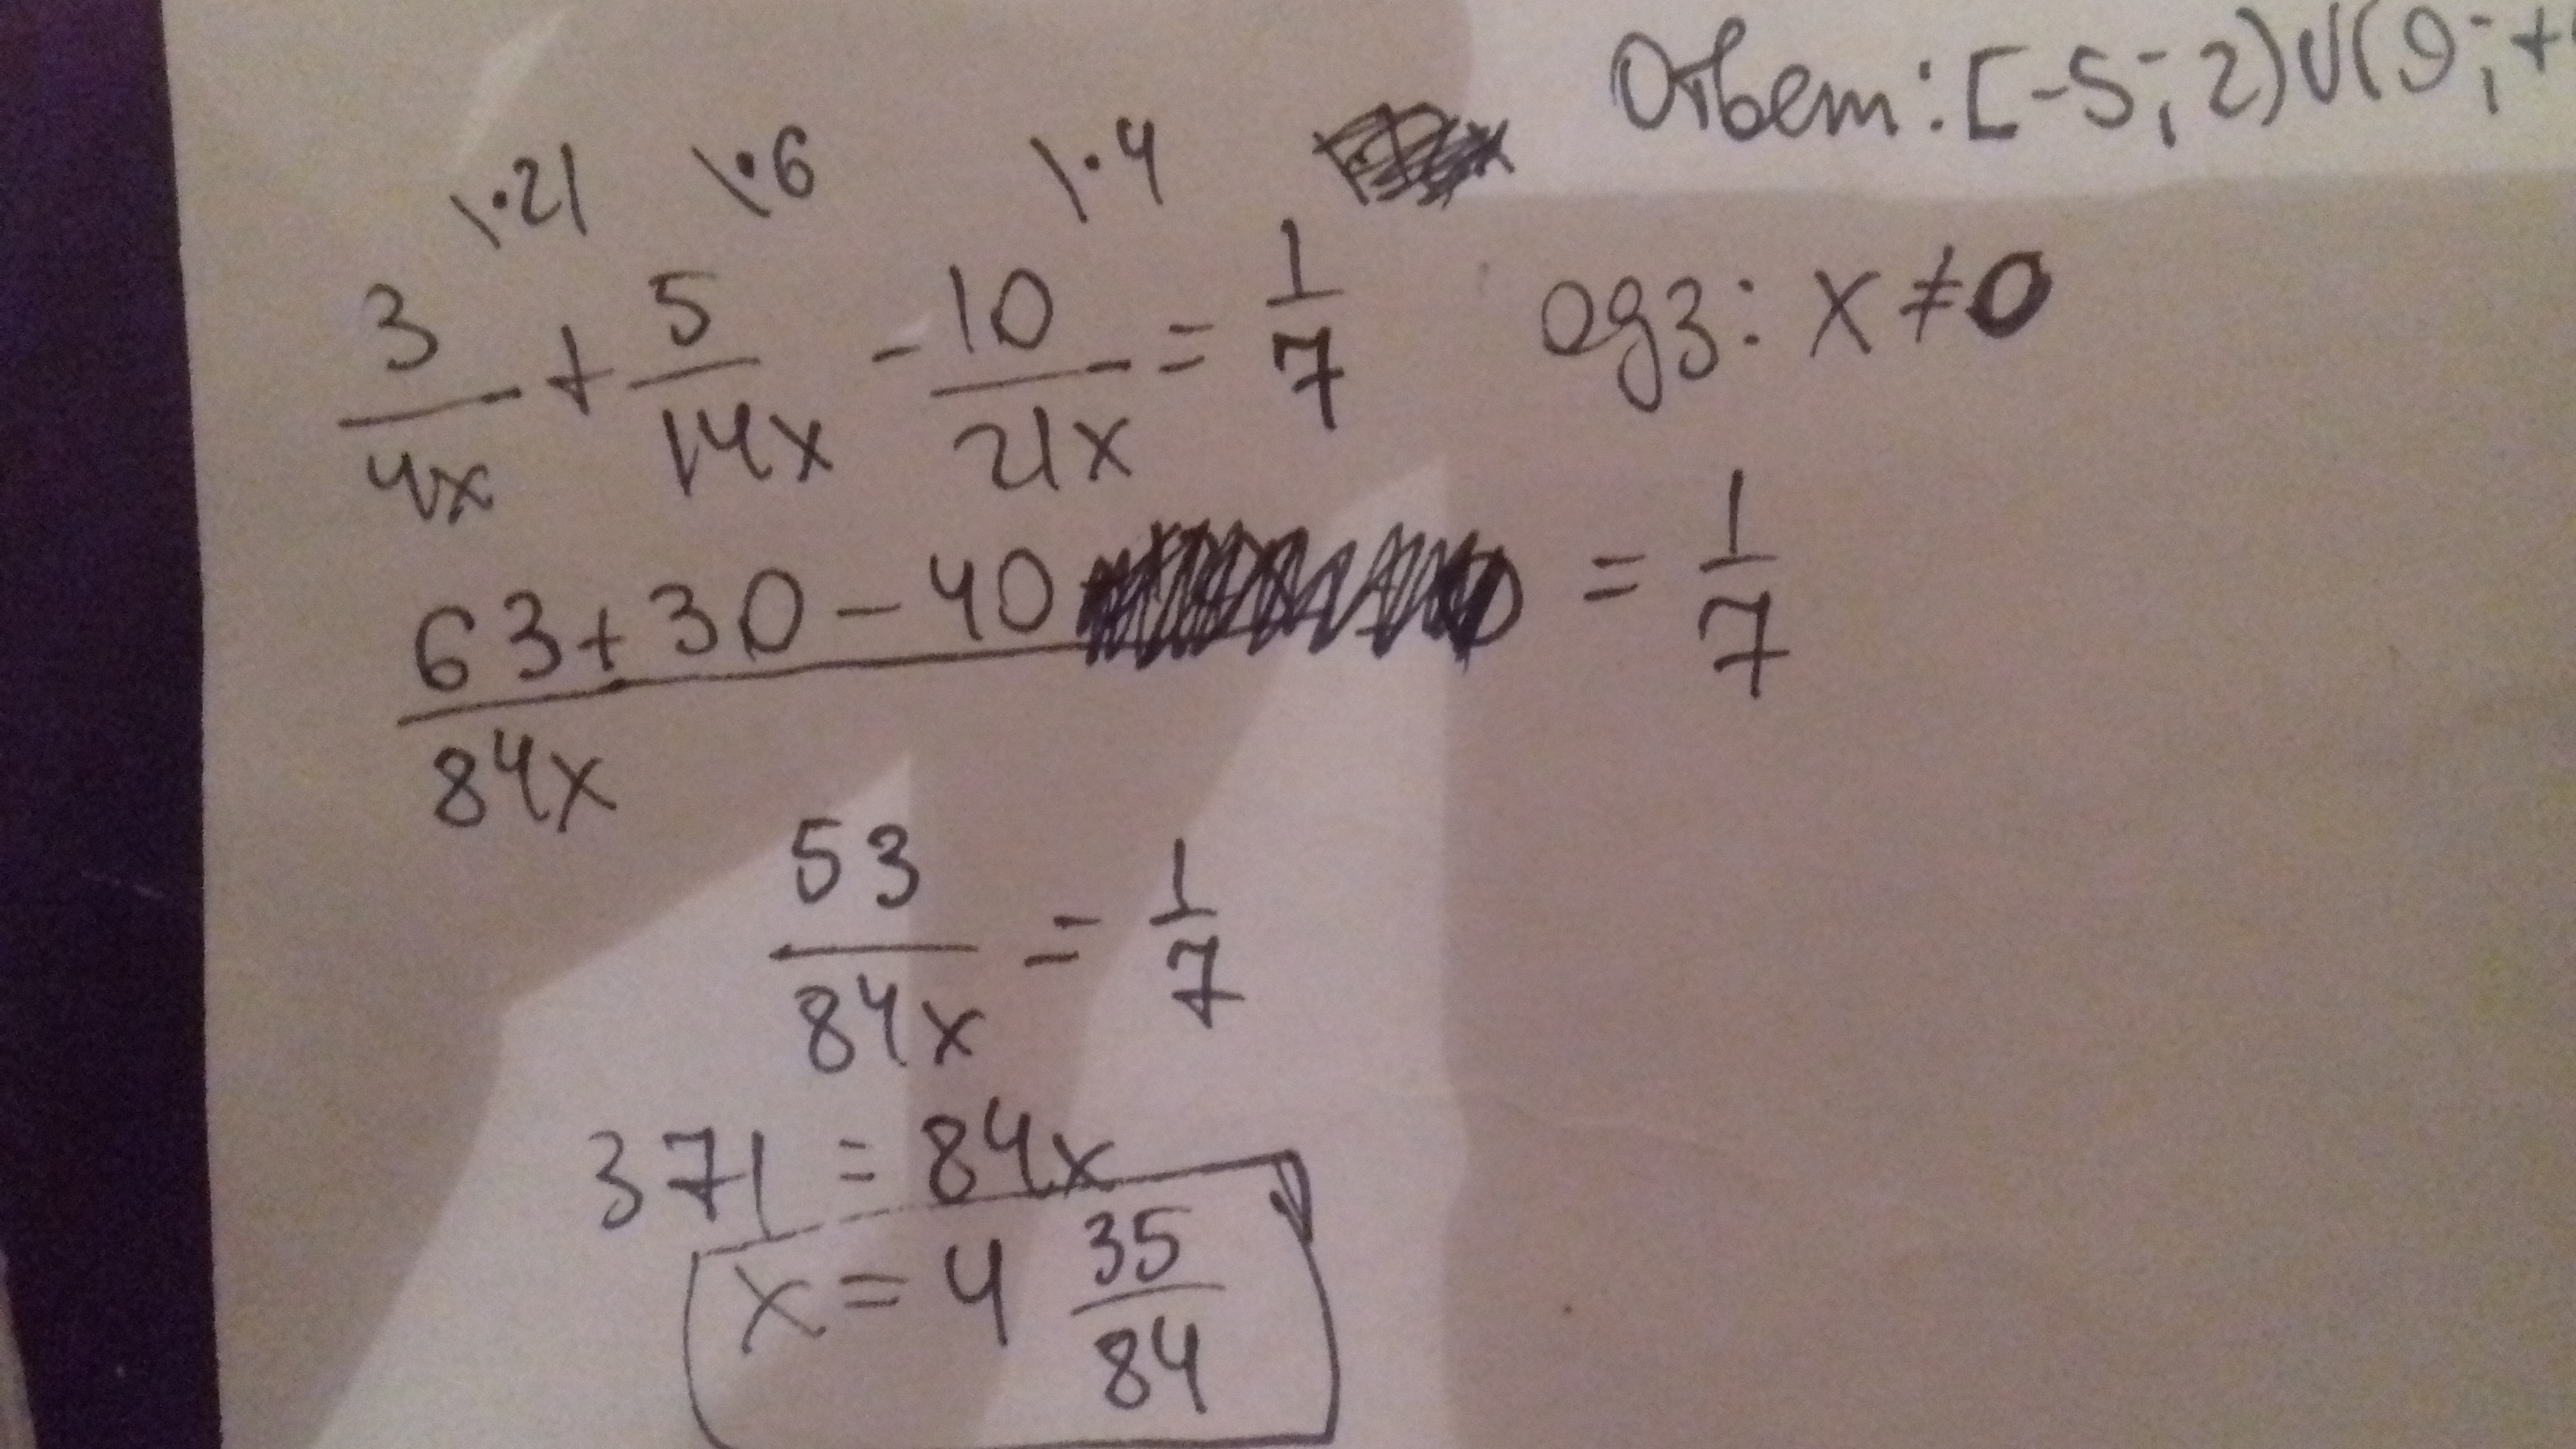 Ответ: [-5; 2)∪(9; +
\·21 \·6 \·4
3/4x + 5/14x - 10/21x = 1/7 одз: x ≠ 0
63+30-40/84x = 1/7
53/84x = 1/7
371 = 84x
x = 4 35/84